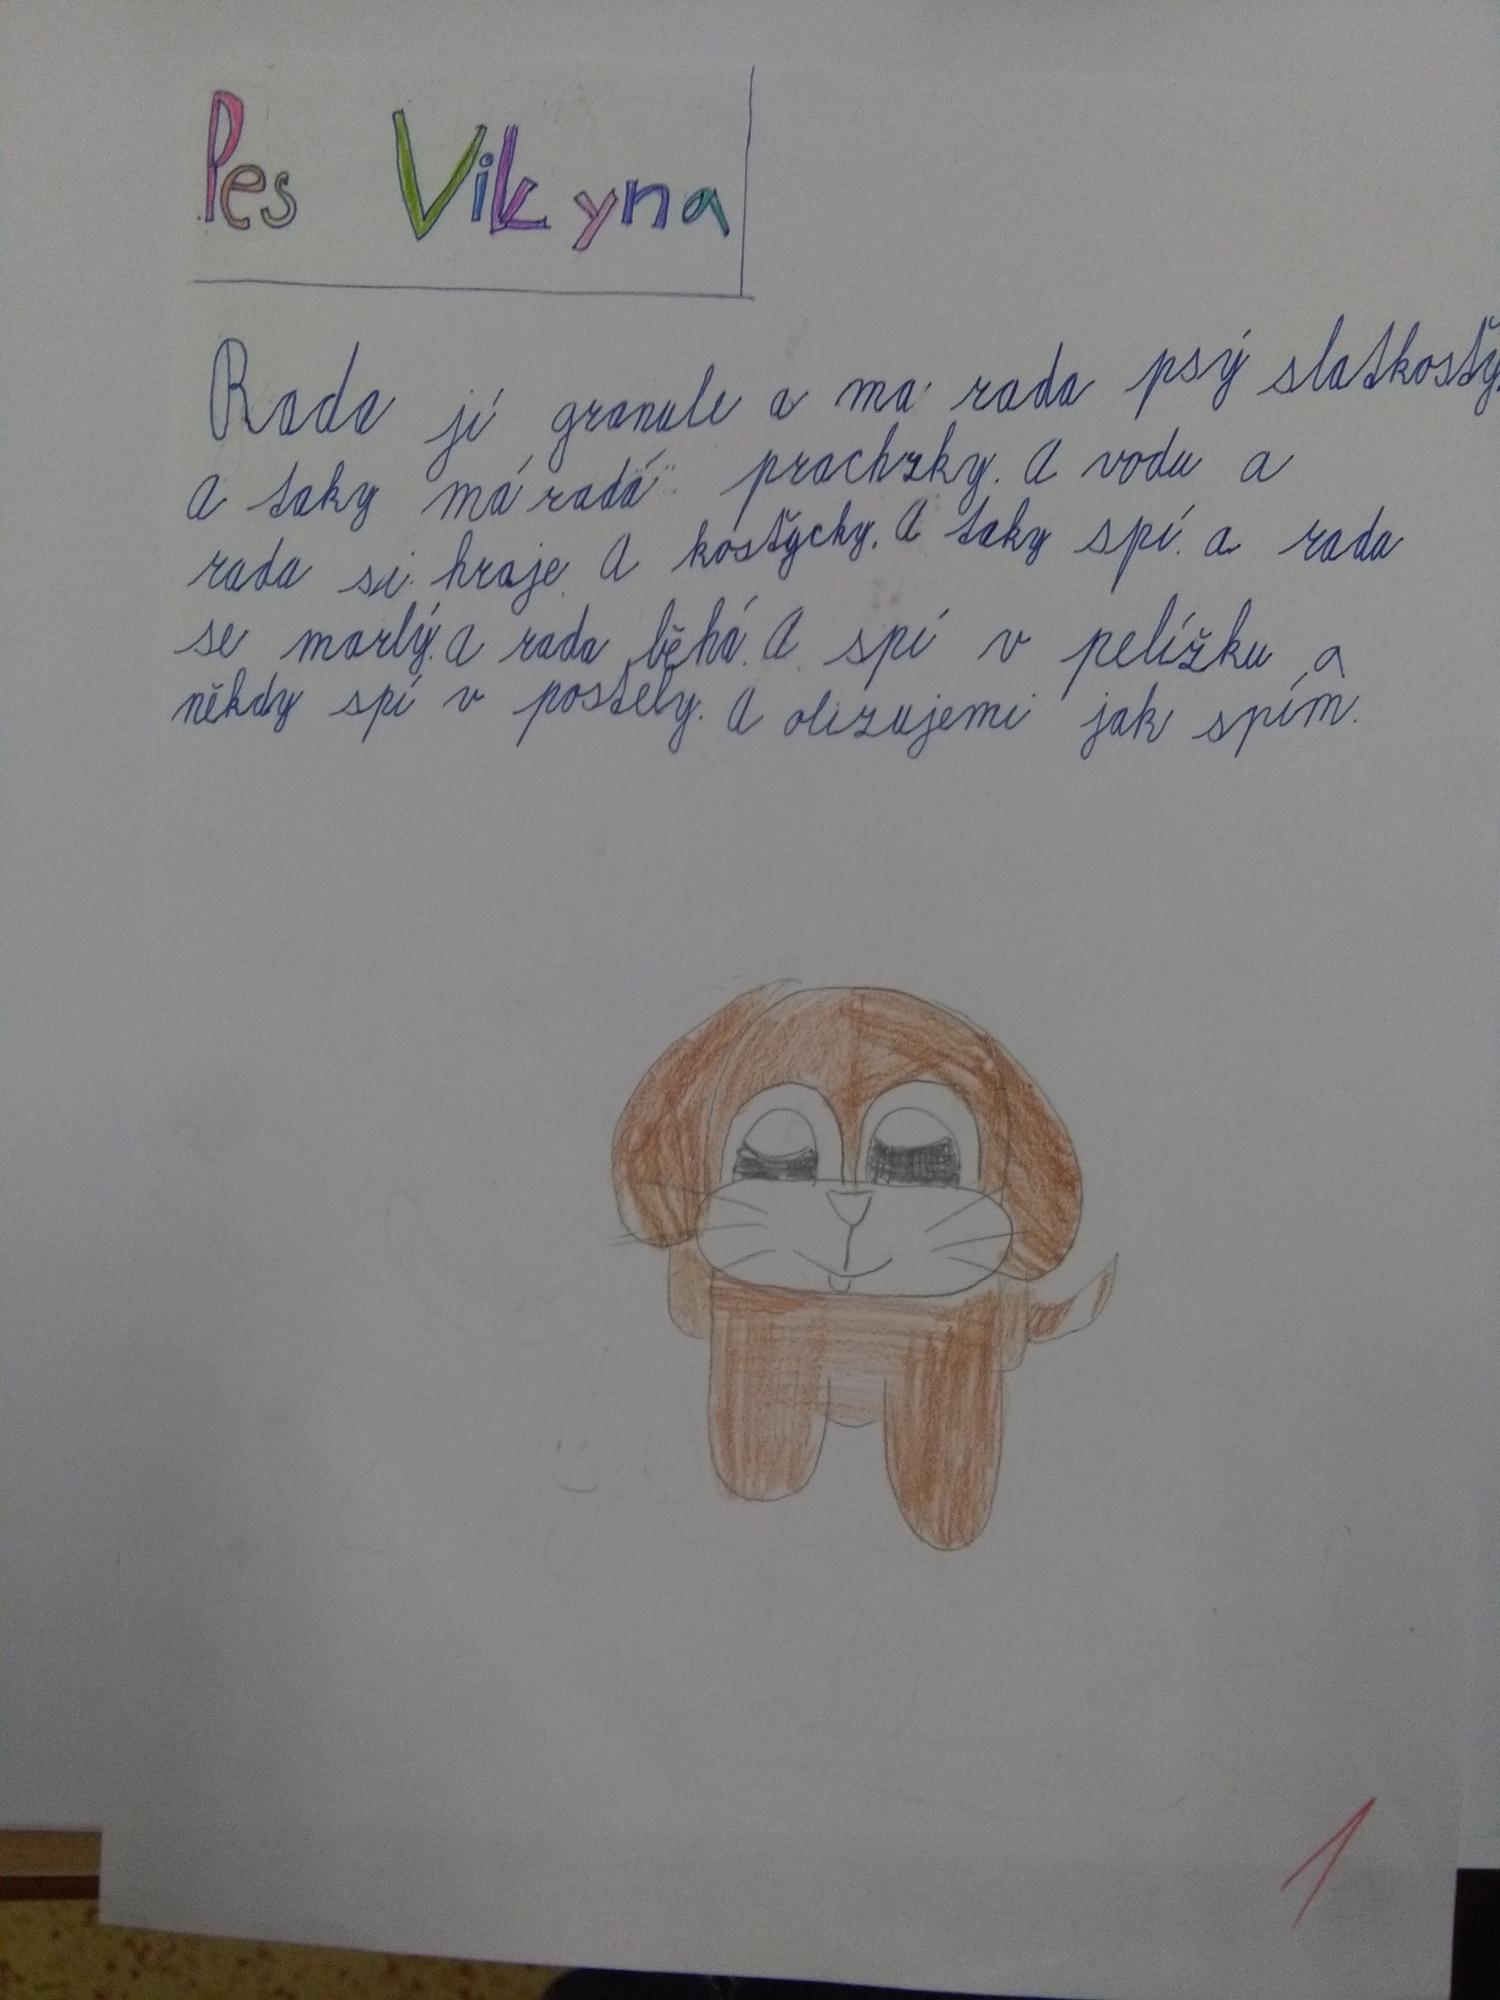 Pes Vikyna
Rada jí granule a ma rada psý slatkostý.
A taky má radá prachzky. A vodu a
rada si hraje. A kostýcky. A taky spí. a rada
se mazlý. A rada běhá. A spí v pelížku a
někdy spí v postely. A olizujemi jak spím.
1